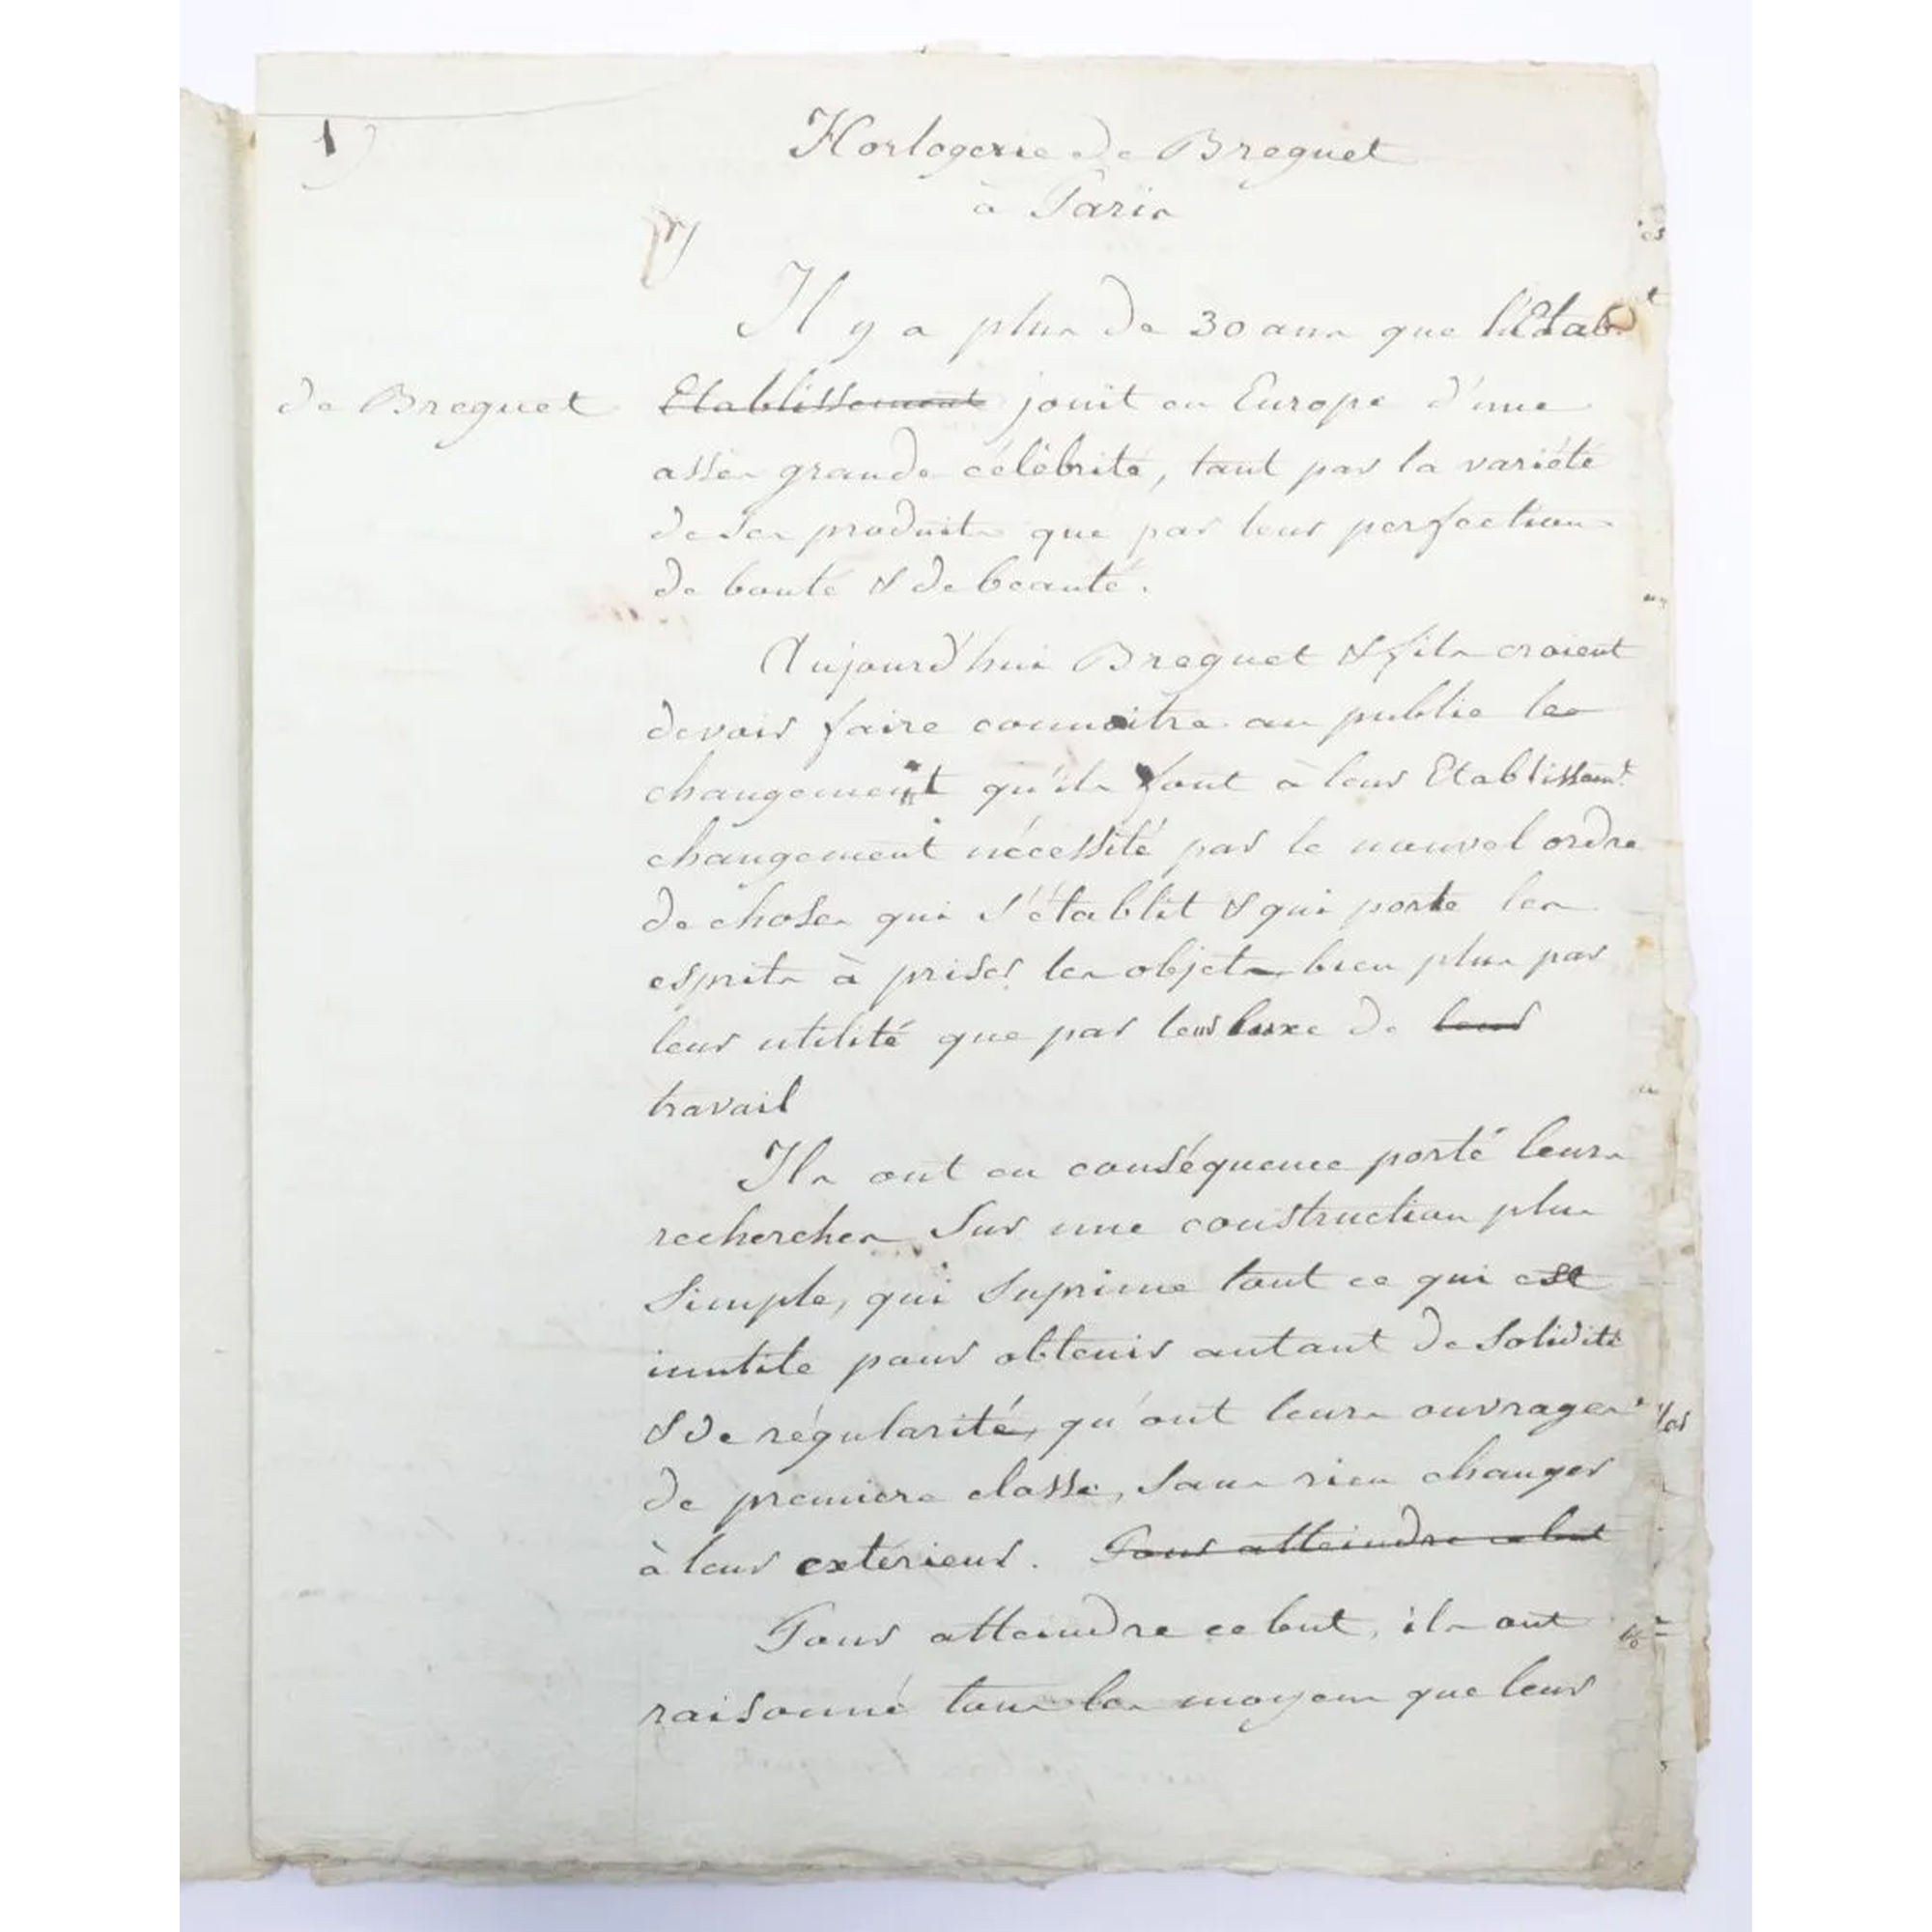 1)
Horlogerie de Breguet
à Paris
Il y a plus de 30 ans que l'Etab.t
de Breguet Etablissement jouit en Europe d'une
assés grande célébrité, tant par la variété
de ses produits que par leur perfection
de bonté & de beauté.
Aujourd'hui Breguet & fils croient
devoir faire connoitre au public les
changement qu'ils font à leur Etablissem.t
changement nécessité par le nouvel ordre
de choses qui s'établit & qui porte les
esprits à priser les objets, bien plus par
leur utilité que par leur luxe de leur
travail
Ils ont en conséquence porté leurs
recherches sur une construction plus
simple, qui suprime tout ce qui est
inutile pour obtenir autant de solidité
& de régularité, qu'ont leurs ouvrages
de premiere classe, sans rien changer
à leur extérieur. Pour atteindre ce but
Pour atteindre ce but, ils ont
raisonné tous les moyens que leur